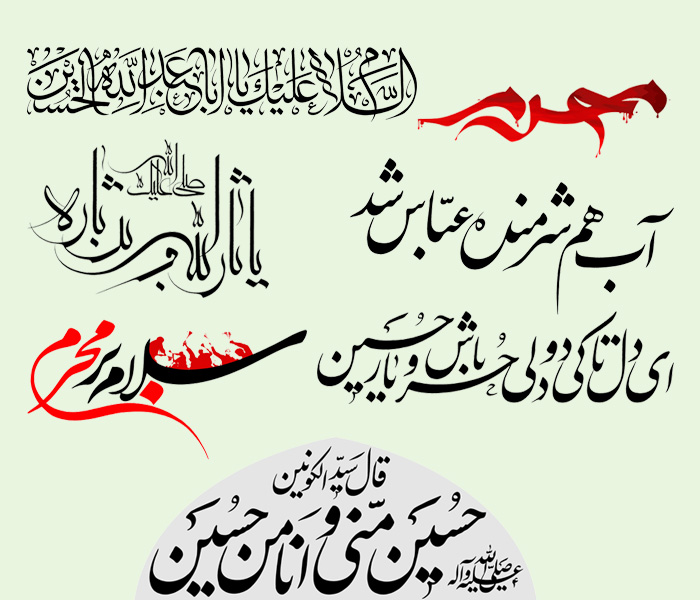 السلام علیک یا اباعبدالله الحسین
محرم
صلی الله علیک
یا ثارالله وبن ثاره
آب هم شرمنده عبّاس شد
سلام بر محرم
ای دل تا کی دو دلی حُر باش و یار حسین
قال سیّد الکونین
حُسین منّی و اَنَا من حُسین
صلی الله علیه وآله